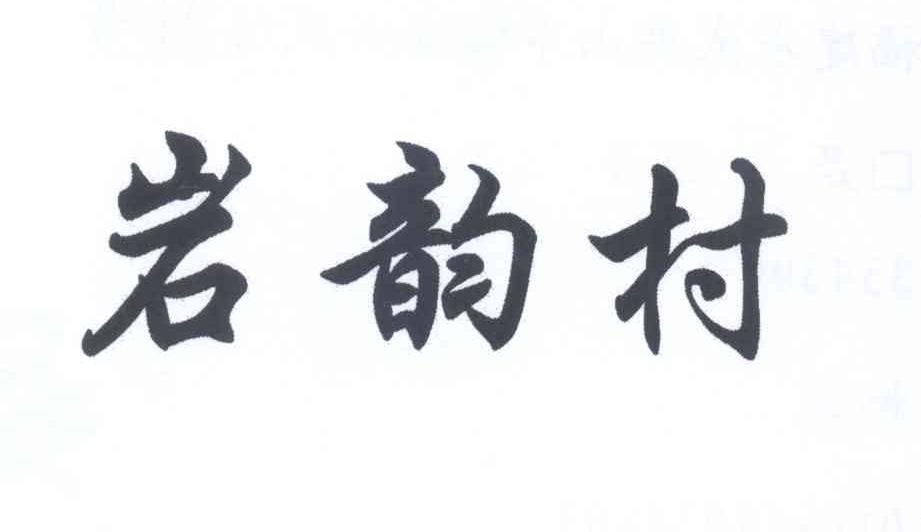 岩韵村